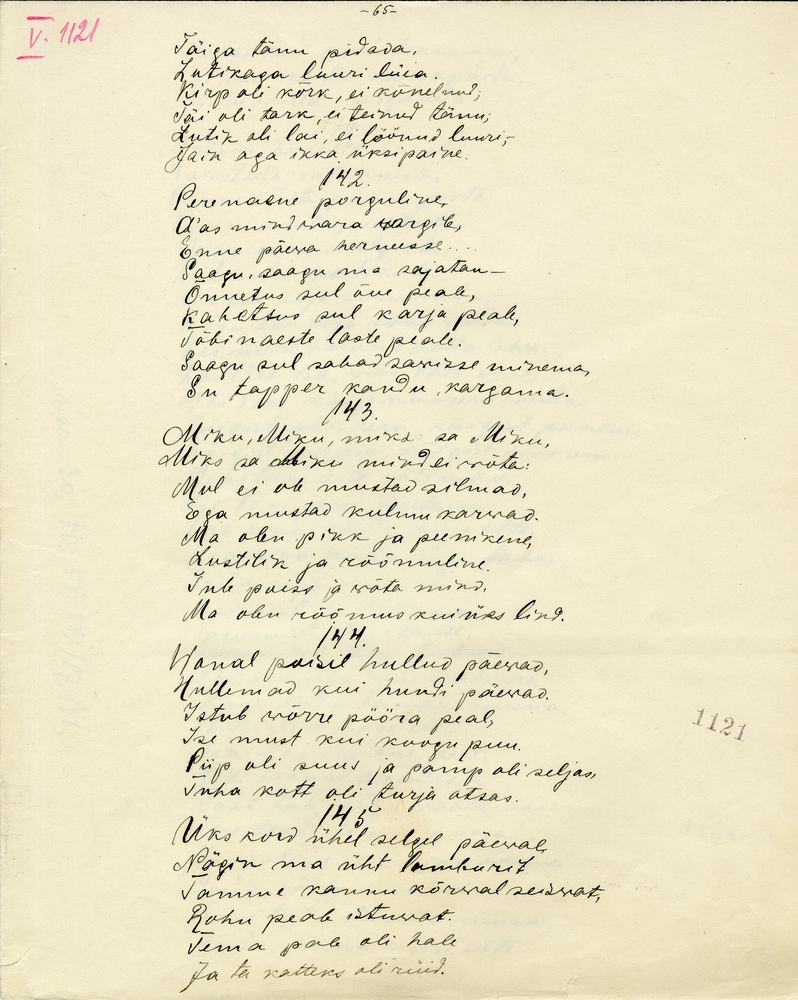 -65-
V. 1121
Täiga tänu pidada,
Lutikaga luuri lüia.
Kirp oli kõrk, ei kõnelnud;
Täi oli tark, ei teinud tänu;
Lutik oli lai, ei löönud luuri,-
Jäin aga ikka üksipäine.
142.
Perenaene porguline,
A'as mind wara wargile,
Enne päewa herneisse....
Saagu, saagu ma sajatan—
Õnnetus sul õue peale,
Kahetsus sul karja peale,
Tõbi naeste laste peale.
Saagu sul sabad sawisse minema,
Su tapper kandu kargama.
143.
Miku, Miku, miks sa Miku,
Miks sa Miku mind ei wõta:
Mul ei ole mustad silmad,
Ega mustad kulmu karwad.
Ma olen pikk ja peenikene,
Lustilik ja rõõmuline.
Tule poiss ja wõta mind,
Ma olen rõõmus kui üks lind.
144.
Wanal poisil hullud päewad,
Hullemad kui hundi päewad.
Istub wõrre pööra peal,
Ise must kui koogu puu.
Piip oli suus ja pamp oli seljas,
Tuha kott oli turja otsas.
145
Üks kord ühel selgel päewal
Nägin ma üht lamburit
Tamme kannu kõrwal seiswat,
Rohu peale istuwat.
Tema pale oli hale
Ja ta katteks oli rüüd.
1121